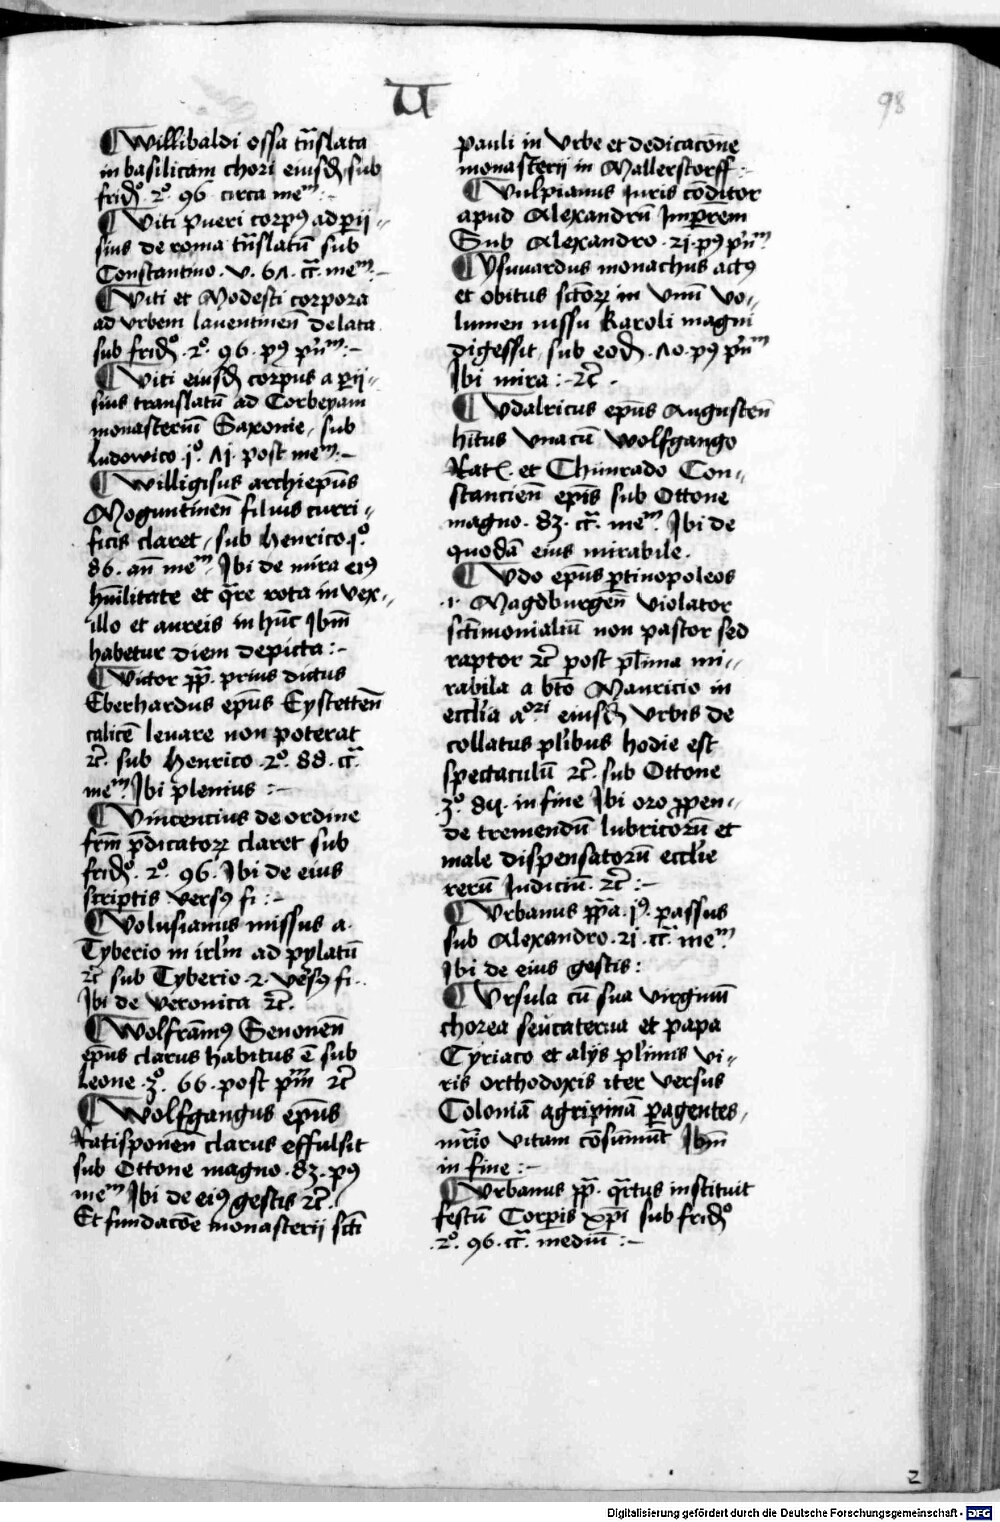 U
98
¶ Willibaldi ossa trãslata
in basilicam chori eiusdꝫ sub
fridꝰ. 2ꝰ. 96 circa meᵐ :-
¶ Viti pueri corpꝰ ad pij-
sius de roma trãslatũ sub
Constantino . v . 61 . cᵃ. meᵐ. -
¶ Viti et Modesti corpora
ad vrbem laventineñ delata
sub fridꝰ . 2ꝰ. 96 . pꝰ pñᵐ :-
¶ Viti eiusdꝫ corpus a pij-
sius translatũ ad Corbeyam
monasteriũ Saxonie, sub
Ludowico . jꝰ. 11 . post meᵐ :-
¶ Willigisus archiepũs
Moguntineñ filius curri-
ficis claret, sub Henrico jꝰ
86 . añ meᵐ. Ibi de mira eiꝰ
hũilitate et qre rota in vex-
illo et aureis in hũc Ibm̃
habetur diem depicta :-
¶ Victor pp̃. prius dictus
Eberhardus epũs Eystetteñ
calicẽ levare non poterat
rc̃. sub Henrico . 2ꝰ. 88 . cᵃ.
meᵐ. Ibi plenius :-
¶ Vincencius de ordine
frm̃ p̃dicatorꝝ claret sub
fridꝰ . 2ꝰ. 96 . Ibi de eius
scriptis versꝰ fi :-
¶ Volusianus missus a
Tyberio in irlm̃ ad pylatũ
rc̃ sub Tyberio . 2 . versꝰ fi .
Ibi de veronica rc̃.
¶ Wolframꝰ Senoneñ
epũs clarus habitus ẽ sub
Leone . 3ꝰ. 66 . post pñᵐ rc̃
¶ Wolfgangus epũs
Ratisponeñ clarus effulsit
sub Ottone magno . 83 . pꝰ
meᵐ Ibi de eiꝰ gestis rc̃.
Et fundacõe monasterij scti
pauli in Vrbe et dedicacõne
monasterij in Mallerstorff :-
¶ Vulpianus Iuris cõditor
apud Alexandrũ Imp̃rem
Sub Alexandro . 21 . pꝰ pñᵐ
¶ Vsuuardus monachus actꝰ
et obitus sctõrꝝ in vnũ vo-
lumen iussu Karoli magni
digessit, sub eodꝫ . 10 . pꝰ pñᵐ
Ibi mira :- rc̃ .
¶ Vdalricus epũs Augusteñ
hitus vnacũ Wolfgango
Rat . et Chunrado Con-
stancieñ ep̃is sub Ottone
magno . 83 . cᵃ. meᵐ. Ibi de
quodã eius mirabile .
¶ Vdo epũs ptinopoleos
.i. Magdburgeñ violator
sctimonialiũ non pastor sed
raptor rc̃ post plĩma mi-
rabila a bto Mauricio in
ecclĩa aᵒʳⁱ eiusdꝫ vrbis de
collatus plĩbus hodie est
spectaculũ rc̃. sub Ottone
3ꝰ. 84 . in fine Ibi oro ppen-
de tremendũ lubricorũ et
male dispensatorũ ecclĩe
rerũ Iudiciũ . rc̃ :-
¶ Vrbanus ppᵃ. jꝰ. passus
sub Alexandro . 21 . cᵃ. meᵐ
Ibi de eius gestis :
¶ Vrsula cũ sua virginũ
chorea seu caterua et papa
Cyriaco et alijs plĩmis vi-
ris orthodoxis iter versus
Coloniã agripinã pagentes,
mrĩo vitam cõsũmũt Ibm̃
in fine :-
¶ Vrbanus pp̃. qrtus instituit
festũ Corpis xp̃i sub fridꝰ
. 2ꝰ. 96 . cᵃ. mediũ :-
2
Digitalisierung gefördert durch die Deutsche Forschungsgemeinschaft - DFG